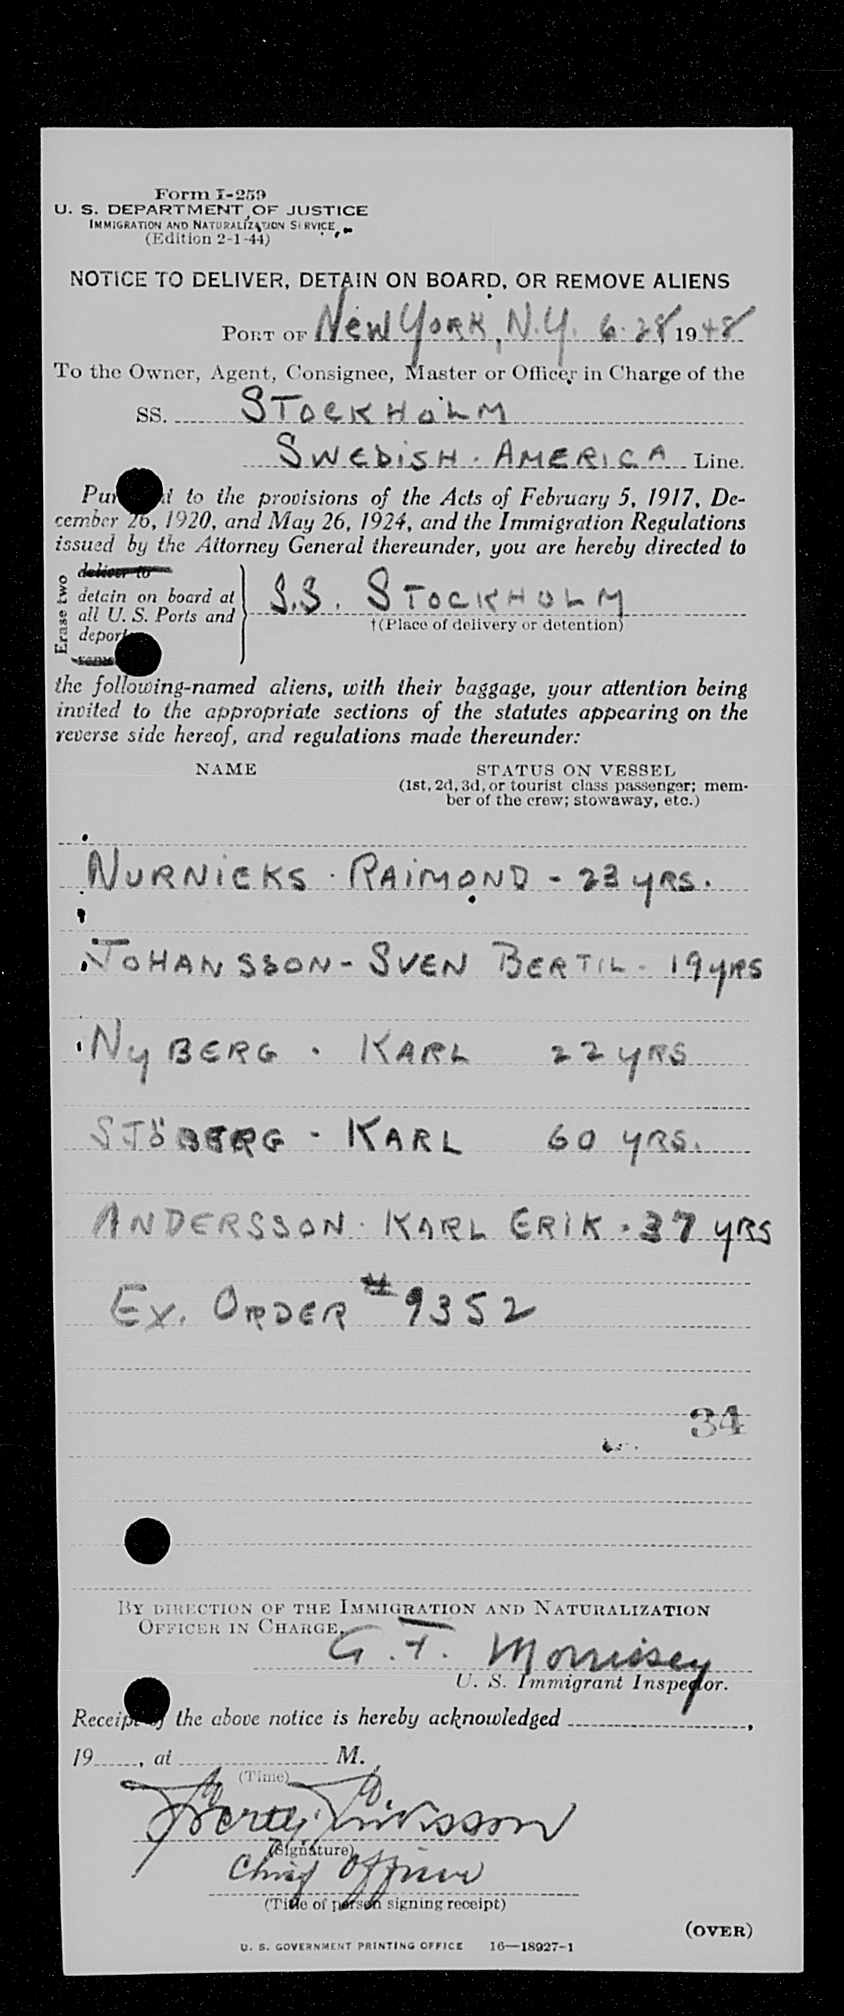 Form I-259
U. S. DEPARTMENT OF JUSTICE
IMMIGRATION AND NATURALIZATION SERVICE
(Edition 2-1-44)
NOTICE TO DELIVER, DETAIN ON BOARD, OR REMOVE ALIENS
PORT OF NEW YORK, N.Y. 6-28 1948
To the Owner, Agent, Consignee, Master or Officer in Charge of the
SS. STOCKHOLM
SWEDISH - AMERICA Line.
Pursuant to the provisions of the Acts of February 5, 1917, De-
cember 26, 1920, and May 26, 1924, and the Immigration Regulations
issued by the Attorney General thereunder, you are hereby directed to
Erase two
deliver to
detain on board at
all U. S. Ports and
deport
S.S. STOCKHOLM
†(Place of delivery or detention)
the following-named aliens, with their baggage, your attention being
invited to the appropriate sections of the statutes appearing on the
reverse side hereof, and regulations made thereunder:
NAME STATUS ON VESSEL
(1st, 2d, 3d, or tourist class passenger; mem-
ber of the crew; stowaway, etc.)
NURNIEKS - RAIMOND - 23 YRS.
JOHANSSON - SVEN BERTIL - 19 YRS
NYBERG - KARL 22 YRS
SJÖBERG - KARL 60 YRS.
ANDERSSON - KARL ERIK - 37 YRS
EX. ORDER # 9352
34
BY DIRECTION OF THE IMMIGRATION AND NATURALIZATION
OFFICER IN CHARGE,
G. F. Morrissey
U. S. Immigrant Inspector.
Receipt of the above notice is hereby acknowledged
19 , at M.
(Time)
(Signature)
Chief Officer
(Title of person signing receipt)
(OVER)
U. S. GOVERNMENT PRINTING OFFICE 16—18927-1